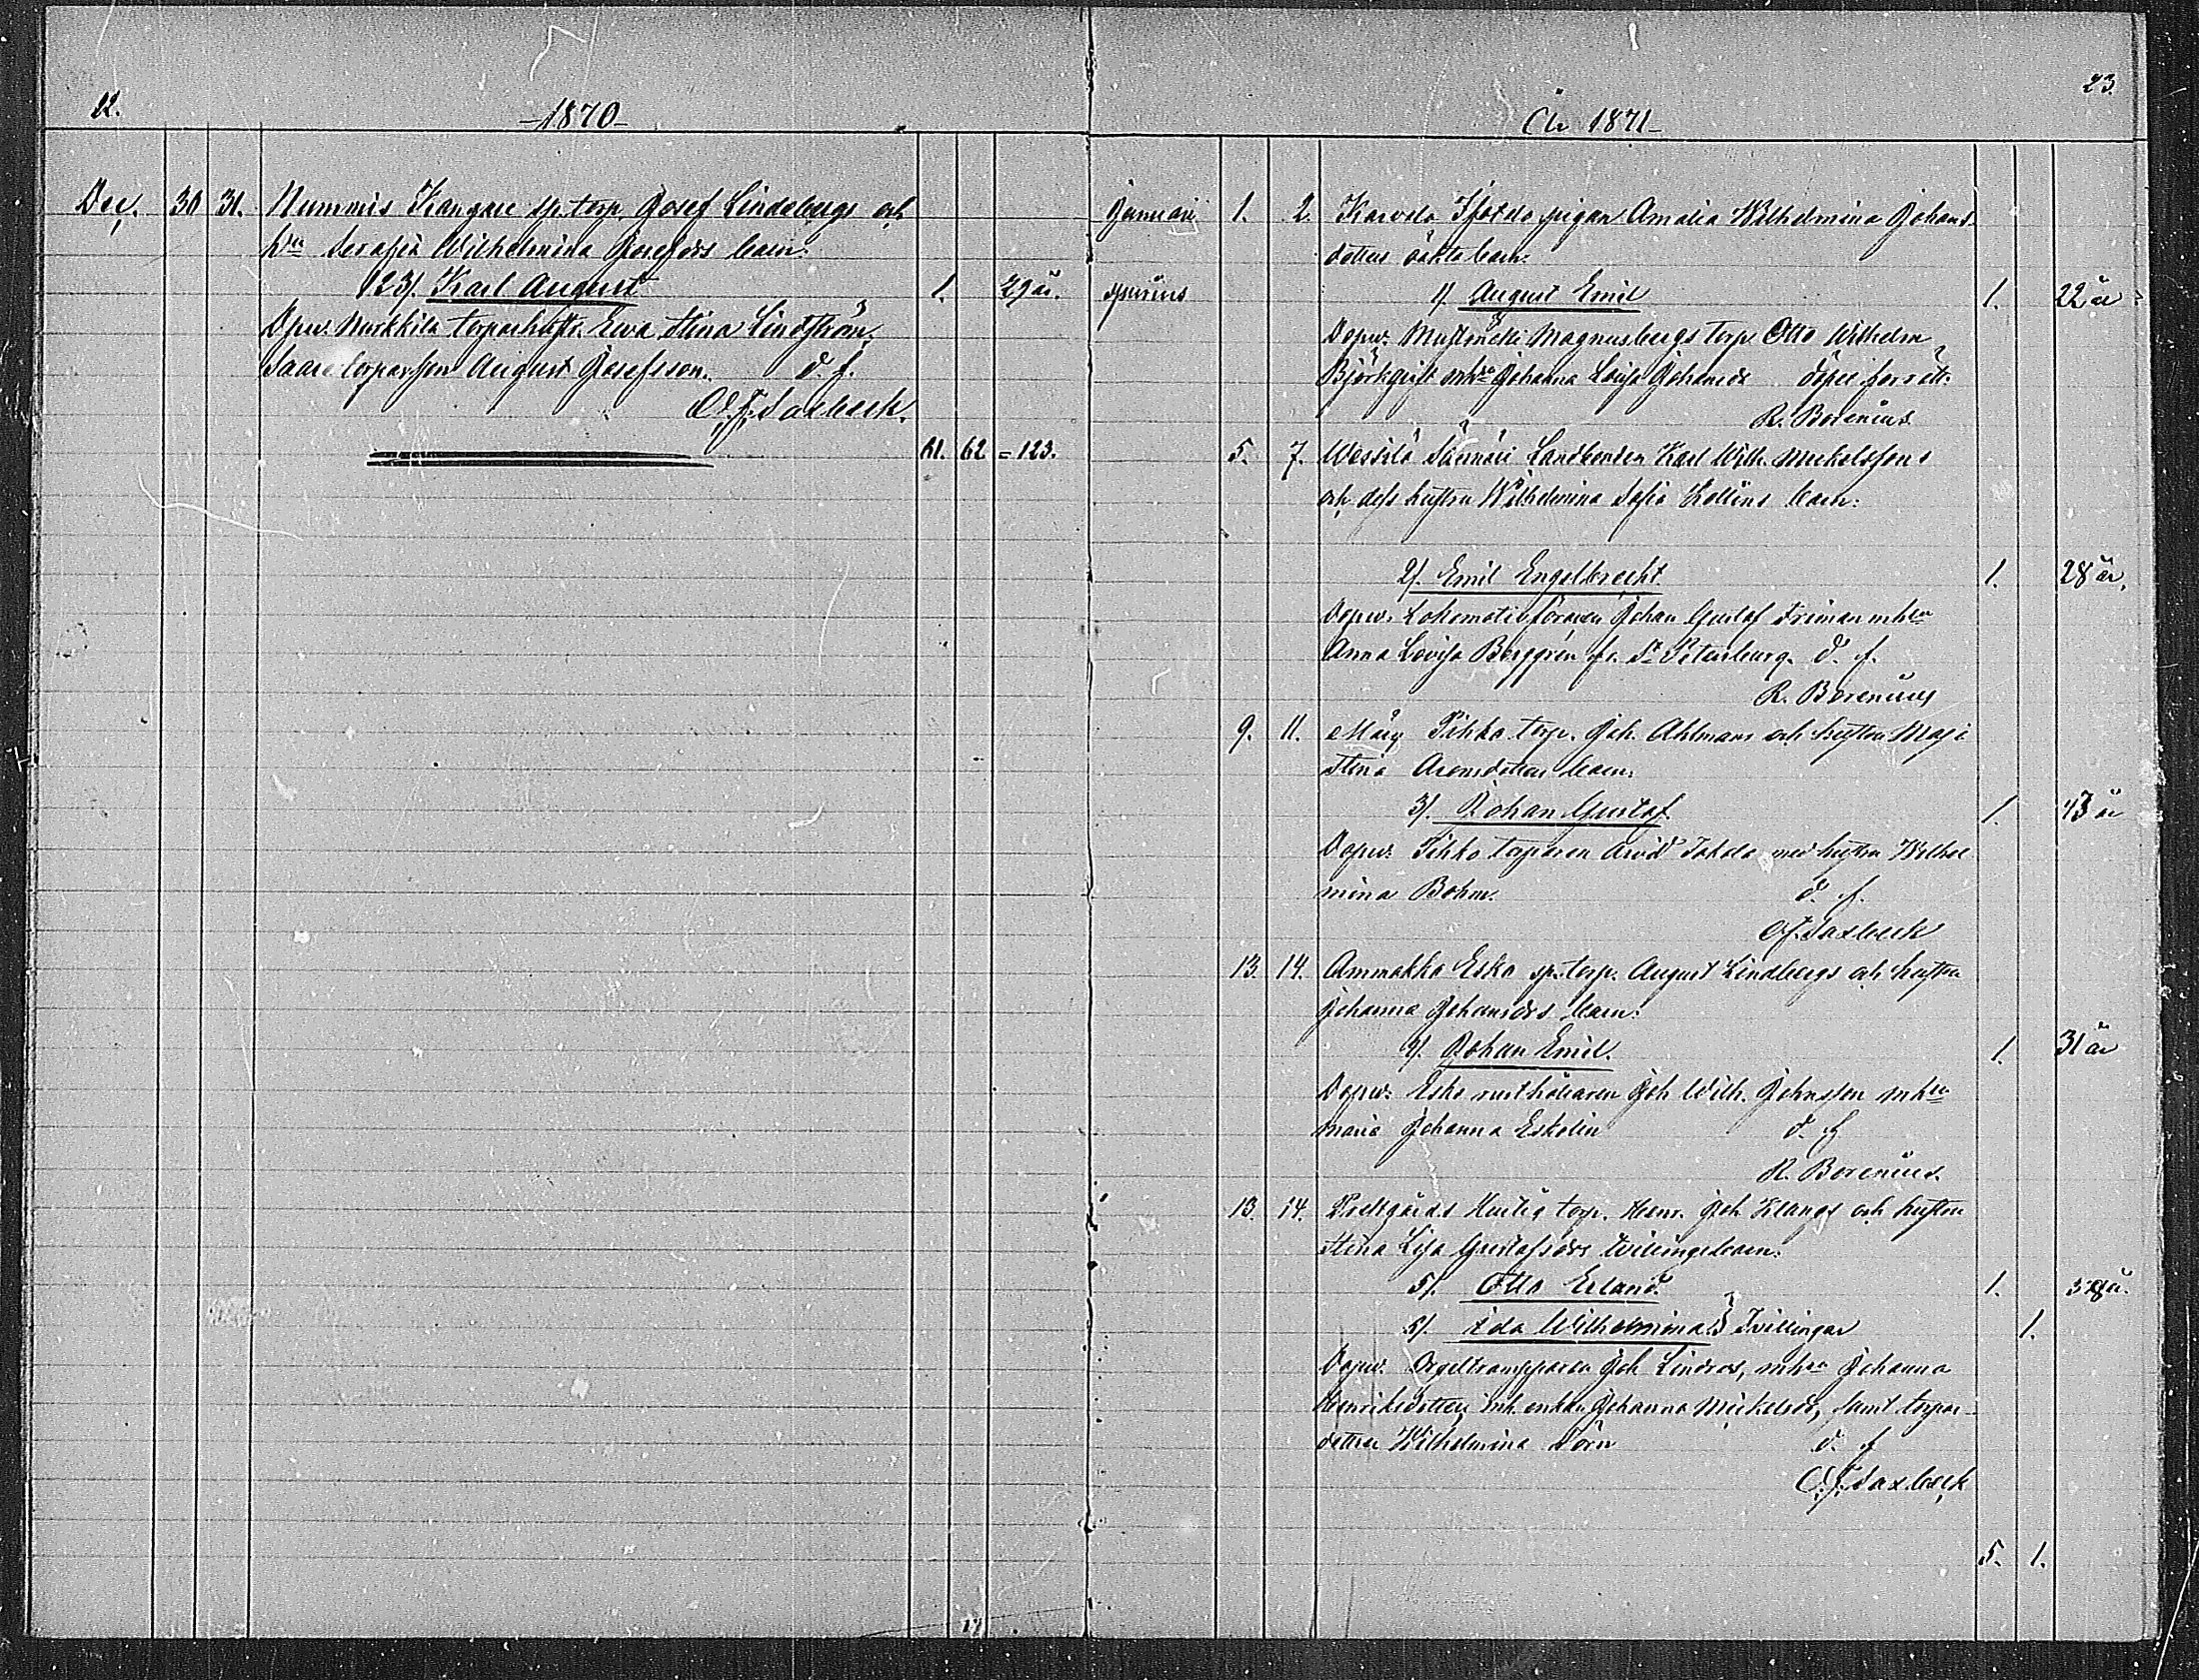 22.
-1870-
Dec. 30 31. Nummis Kangare sp.torp. Josef Lindebergs och
hru Serafia Wilhelmina Josefsdrs barn:
123). Karl August 1. 29 år.
Dpw. torparhustr. Ewa Stina Lindström,
Saari torparson August Josefsson. d. f.
O. F. Saxbeck.
61. 62 = 123.
23.
År 1871-
Januari 1. 2. Karvela pigan Amalia Wilhelmina Johans-
dotters oäkta barn:
spurius 1). August Emil 1. 22 år
Dopw. Magnusbergs torp. Otto Wilhelm
Björkqvist mhru Johanna Lovisa Johansdr döpee förrätt.
R. Borenius
5. 7. Wessilä Sännäri Landbonden Karl Wilh. Mickelssons
och dess hustru Wilhelmina Sofia barn:
2). Emil Engelbrecht 1. 28 år.
Dopw. Lokomotivföraren Johan Gustaf Friman mhru
Anna Lovisa Berggrén fr. St Petersburg. d. f.
R. Borenius
9. 11. Pihko torp. Joh. Ahlmans och hustru Maja
Stina Aronsdotters barn:
3). Johan Gustaf 1. 43 år
Dopw. Pihko torparen Arvid med hustru Wilhel
mina Bohm. d. f.
O. F. Saxbeck
13. 14. Ammakka Esko sp.torp. August Lindbergs och hustru
Johanna Johansdrs barn:
4). Johan Emil. 1. 31 år
Dopw. Esko rusthållaren Joh Wilh. Johnsson mhru
Maria Johanna Eskolin d. f.
R. Borenius.
13. 14. Prestgårds torp. Henr. Joh. Klangs och hustru
Stina Lisa Gustafsdrs tvillingebarn:
5). Otto Erland 1.
6). Ida Wilhelmina } Tvillingar 1.
Dopw. Orgeltramparen Joh Lindros, mhru Johanna
Henriksdotter, inh. enkan Johanna Mickelsdr, samt torpar-
dottren Wilhelmina Törn d. f.
O. F. Saxbeck
5. 1.